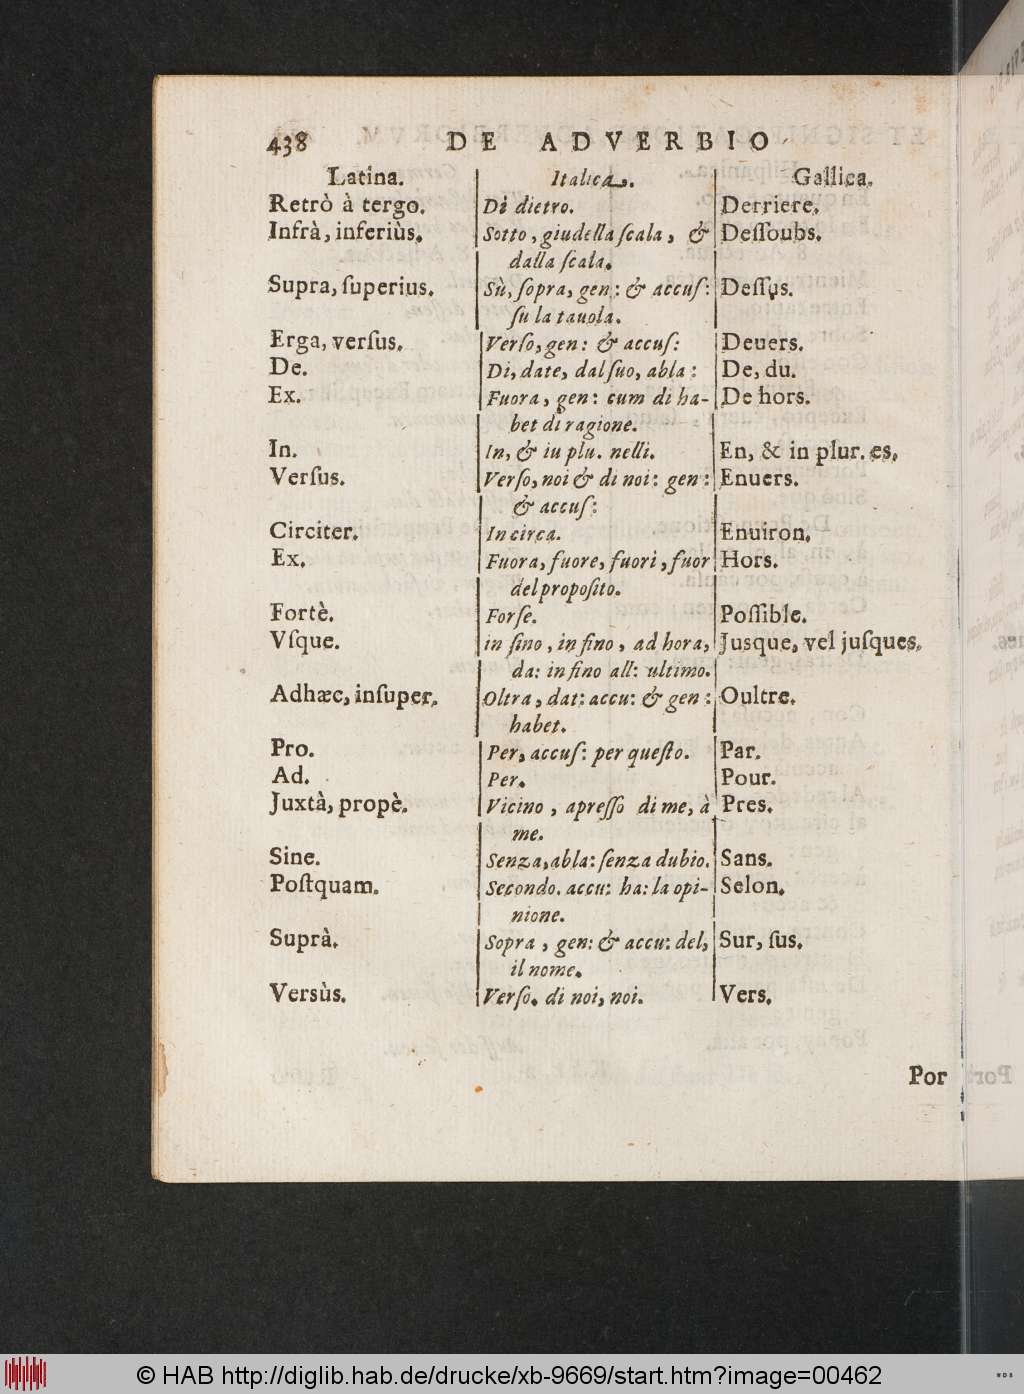 438 DE ADVERBIO
Latina. Italica. Gallica.
Retrò à tergo. Di dietro. Derriere.
Infrà, inferiùs. Sotto, giudella ſcala, & Deſſoubs.
dalla ſcala.
Supra, ſuperius. Sù, ſopra, gen: & accuſ: Deſſus.
ſu la tauola.
Erga, verſus. Verſo, gen: & accuſ: Deuers.
De. Di, date, dal ſuo, abla: De, du.
Ex. Fuora, gen: cum di ha- De hors.
bet di ragione.
In. In, & iu plu. nelli. En, & in plur. es.
Verſus. Verſo, noi & di noi: gen: Enuers.
& accuſ:
Circiter. In circa. Enuiron.
Ex. Fuora, fuore, fuori, fuor Hors.
del propoſito.
Fortè. Forſe. Poſſible.
Vſque. in ſino, in fino, ad hora, Jusque, vel juſques.
da: in fino all: ultimo.
Adhæc, inſuper. Oltra, dat: accu: & gen: Oultre.
habet.
Pro. Per, accuſ: per queſto. Par.
Ad. Per. Pour.
Juxtà, propè. Vicino, apreſſo di me, à Pres.
me.
Sine. Senza, abla: ſenza dubio. Sans.
Poſtquam. Secondo. accu: ha: la opi- Selon.
nione.
Suprà. Sopra, gen: & accu: del, Sur, ſus.
il nome.
Versùs. Verſo. di noi, noi. Vers.
Por
© HAB http://diglib.hab.de/drucke/xb-9669/start.htm?image=00462